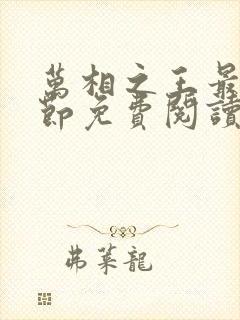 萬相之王最
節免費閱讀
弗萊龍